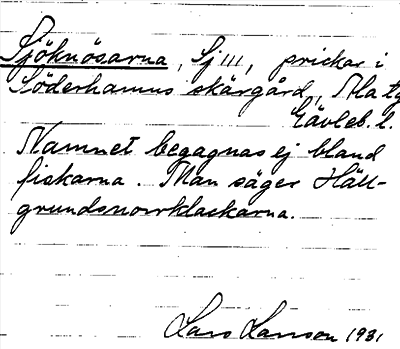 Sjöknösarna, Sj 111, prickar i
Söderhamns skärgård,
Gävleb. l.
Namnet begagnas ej bland
fiskarna. Man säger Häll-
grundsnorrklackarna.
Lars Larsson 1931